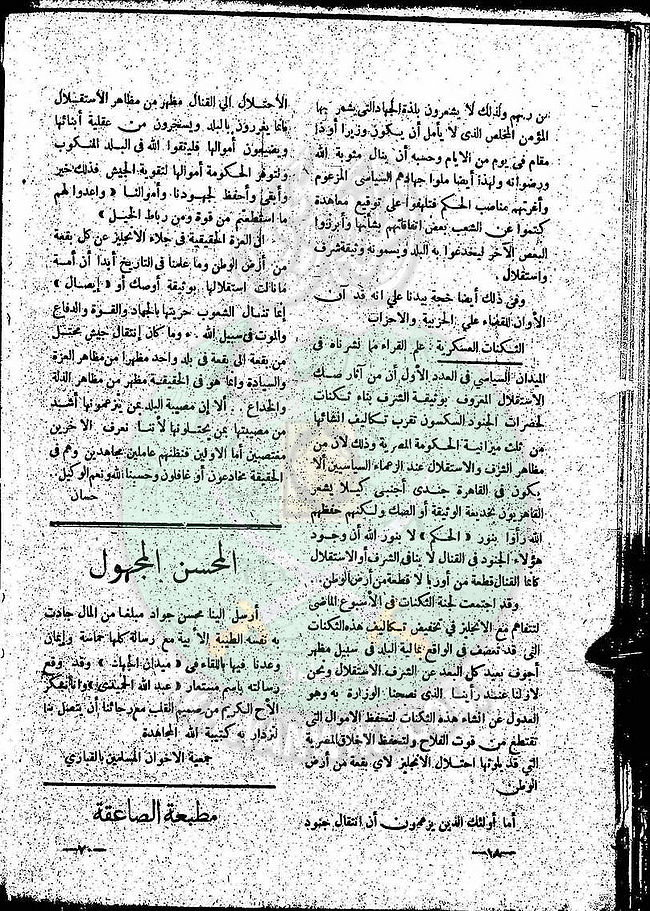 من ربهم ولذلك لا يشعرون بلذة الجهاد التى يشعر بها
المؤمن المخلص الذى لا يأمل أن يكون وزيرا أو ذا
مقام فى يوم من الايام وحسبه أن ينال مثوبة الله
ورضوانه ولهذا أيضا ملوا جهادهم السياسى المزعوم
وأغرتهم مناصب الحكم فتلهفوا على توقيع معاهدة
كتموا عن الشعب بعض اتفاقاتهم بشأنها وأبرزوا
البعض الآخر ليخدعوا به البلد ويسمونه وثيقة شرف
واستقلال .
وفى ذلك أيضا حجة بيدنا على انه قد آن
الأوان للقضاء على الحزبية والاحزاب
الثكنات العسكرية : علم القراء مما نشرناه فى
الميدان السياسى فى العدد الأول أن من آثار صك
الاستقلال المعروف بوثيقة الشرف بناء ثكنات
لحضرات الجنود السكسون تقرب تكاليف انشائها
من ثلث ميزانية الحكومة المصرية وذلك لأن من
مظاهر الشرف والاستقلال عند الزعماء السياسين ألا
يكون فى القاهرة جندى أجنبى كيلا يشعر
القاهريون بخديعة الوثيقة أو الصك ولكنهم حفظهم
الله رأوا بنور « الحكم » لا بنور الله أن وجود
هؤلاء الجنود فى القنال لا ينافى الشرف أو الاستقلال
كأنما القنال قطعة من أوربا لا قطعة من أرض الوطن .
وقد اجتمعت لجنة الثكنات فى الأسبوع الماضى
لتتفاهم مع الانجليز فى تخفيض تكاليف هذه الثكنات
التى قد تعصف فى الواقع بمالية البلد فى سبيل مظهر
أجوف بعيد كل البعد عن الشرف الاستقلال ونحن
لازلنا عند رأينا الذى نصحنا الوزارة به وهو
العدول عن انشاء هذه الثكنات لتحفظ الاموال التى
تقتطع من قوت الفلاح ولتحفظ الاخلاق المصرية
التى قد يلوثها احتلال الانجليز لاى بقعة من أرض
الوطن
أما أولئك الذين يزعمون أن انتقال جنود
— ١٨ —
الأحتلال الى القنال مظهر من مظاهر الأستقلال
فانما يغررون بالبلد ويسخرون من عقلية أبنائها
ويضيعون أموالها فليتقوا الله فى البلد المنكوب
ولتوفر الحكومة أموالها لتقوية الجيش فذلك خير
وأبقى وأحفظ لجهودنا وأموالنا « واعدوا لهم
ما استطعتم من قوة ومن رباط الخيل »
ان العزة الحقيقية فى جلاء الانجليز عن كل بقعة
من أرض الوطن وما علمنا فى التاريخ أبدا أن أمة
نالت استقلالها بوثيقة أوصك أو « إيصال »
إنما تنال الشعوب حريتها بالجهاد والقوة والدفاع
والموت فى سبيل الله . وما كان إنتقال جيش محتل
من بقعة الى بقعة فى بلد واحد مظهرا من مظاهر العزة
والسيادة وانما هو فى الحقيقة مظهر من مظاهر الذلة
والخداع . . ألا إن مصيبة البلد بمن يتزعمونها أشد
من مصيبتها بمن يحتلونها لأننا نعرف الآخرين
مغتصبين أما الاولين فنظنهم عاملين مجاهدين وهم فى
الحقيقة مخادعون أو غافلون وحسبنا الله ونعم الوكيل .
حسان
المحسن المجهول
أرسل الينا محسن جواد مبلغا من المال جادت
به نفسه الطيبة الأبية مع رسالة كلها حماسة وإيمان
وعدنا فيها باللقاء فى « ميدان الجهاد » وقد وقع
رسالته باسم مستعار « عبد الله الجندى » وانا نشكر
الأخ الكريم من صميم القلب مع رجائنا أن يتصل بنا
لنزدار به كتيبة الله المجاهدة
جمعية الاخوان المسلمين بالقبارى
مطبعة الصاعقة
— ٧٠ —